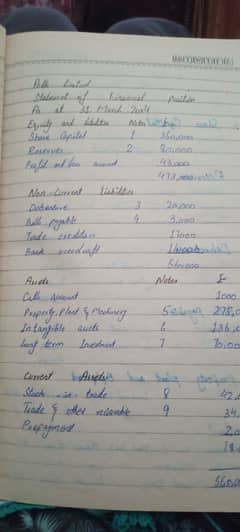 Polk Limited
Statement of Financial Position
As at 31 March 2014
Equity and liabilities Notes
Share Capital 1 350,000
Reserves 2 80,000
Profit and loss account 43,000
473,000
Non-Current liabilities
Debenture 3 20,000
Bills payable 4 3,000
Trade creditors 17000
Bank overdraft
560,000
Assets Notes £
Calls Account 1000
Property, Plant & Machinery 5 278,0
Intangible assets 6 136,0
Long term Investment 7 70,000
Current Assets
Stock in trade 8 42,0
Trade & other receivable 9 34,
Prepayment 2,0
560,0